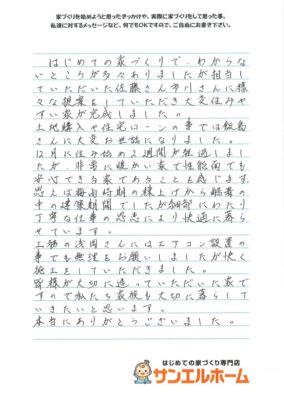 家づくりを始めようと思ったきっかけや、実際に家づくりをして思った事、
私達に対するメッセージなど、何でもOKですので、ご自由にお書き下さい。
はじめての家づくりで、わからな
いところが多々ありましたが担当し
ていただいた佐藤さん市川さんに様
々な提案をしていただき大変住みや
すい家が完成しました。
土地購入や住宅ローンの事では飯島
さんに大変お世話になりました。
12月に住み始め2週間が経過しまし
たが、非常に暖かい家で性能面でも
安心できる家であることを感じます。
思えば梅雨時期の棟上げから酷暑の
中の建築期間でしたが細部にわたり
丁寧な仕事の恩恵により快適に暮ら
せています。
工務の浅岡さんにはエアコン設置の
事でも無理をお願いしましたが快く
施工をしていただきました。
皆様が大切に造っていただいた家で
すので私たち家族も大切に暮らして
いきたいと思います。
本当にありがとうございました。
はじめての家づくり専門店
サンエルホーム